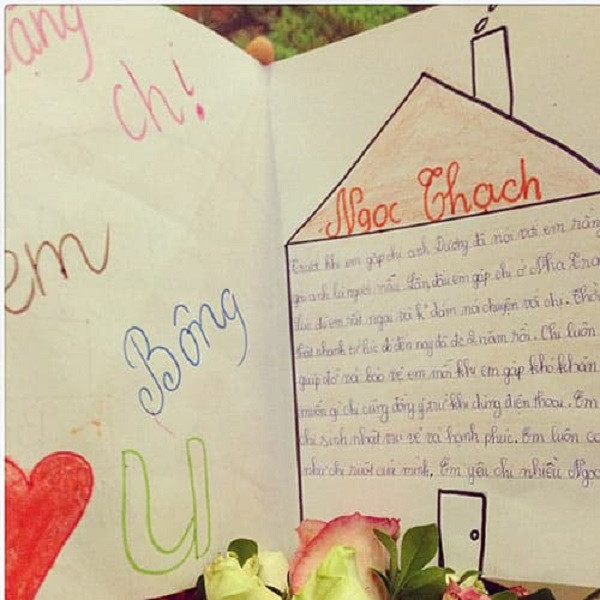 ặng
chị!
em
Bông
U
Ngọc Thạch
Trước khi em gặp chị anh Dương đã nói với em rằng
gái anh là người mẫu. Lần đầu em gặp chị ở Nha Tra
lúc đó em rất ngại và k° dám nói chuyện với chị. Thờ
nhanh từ lúc đó đến nay đã đc 2 năm rồi. Chị luôn
giúp đỡ và bảo vệ em mỗi khi em gặp khó khăn
muốn gì chị cũng đồng ý trừ khi dùng điện thoại. Em
chị sinh nhật vui vẻ và hạnh phúc. Em luôn co
như chị ruột của mình. Em yêu chị nhiều Ngọc